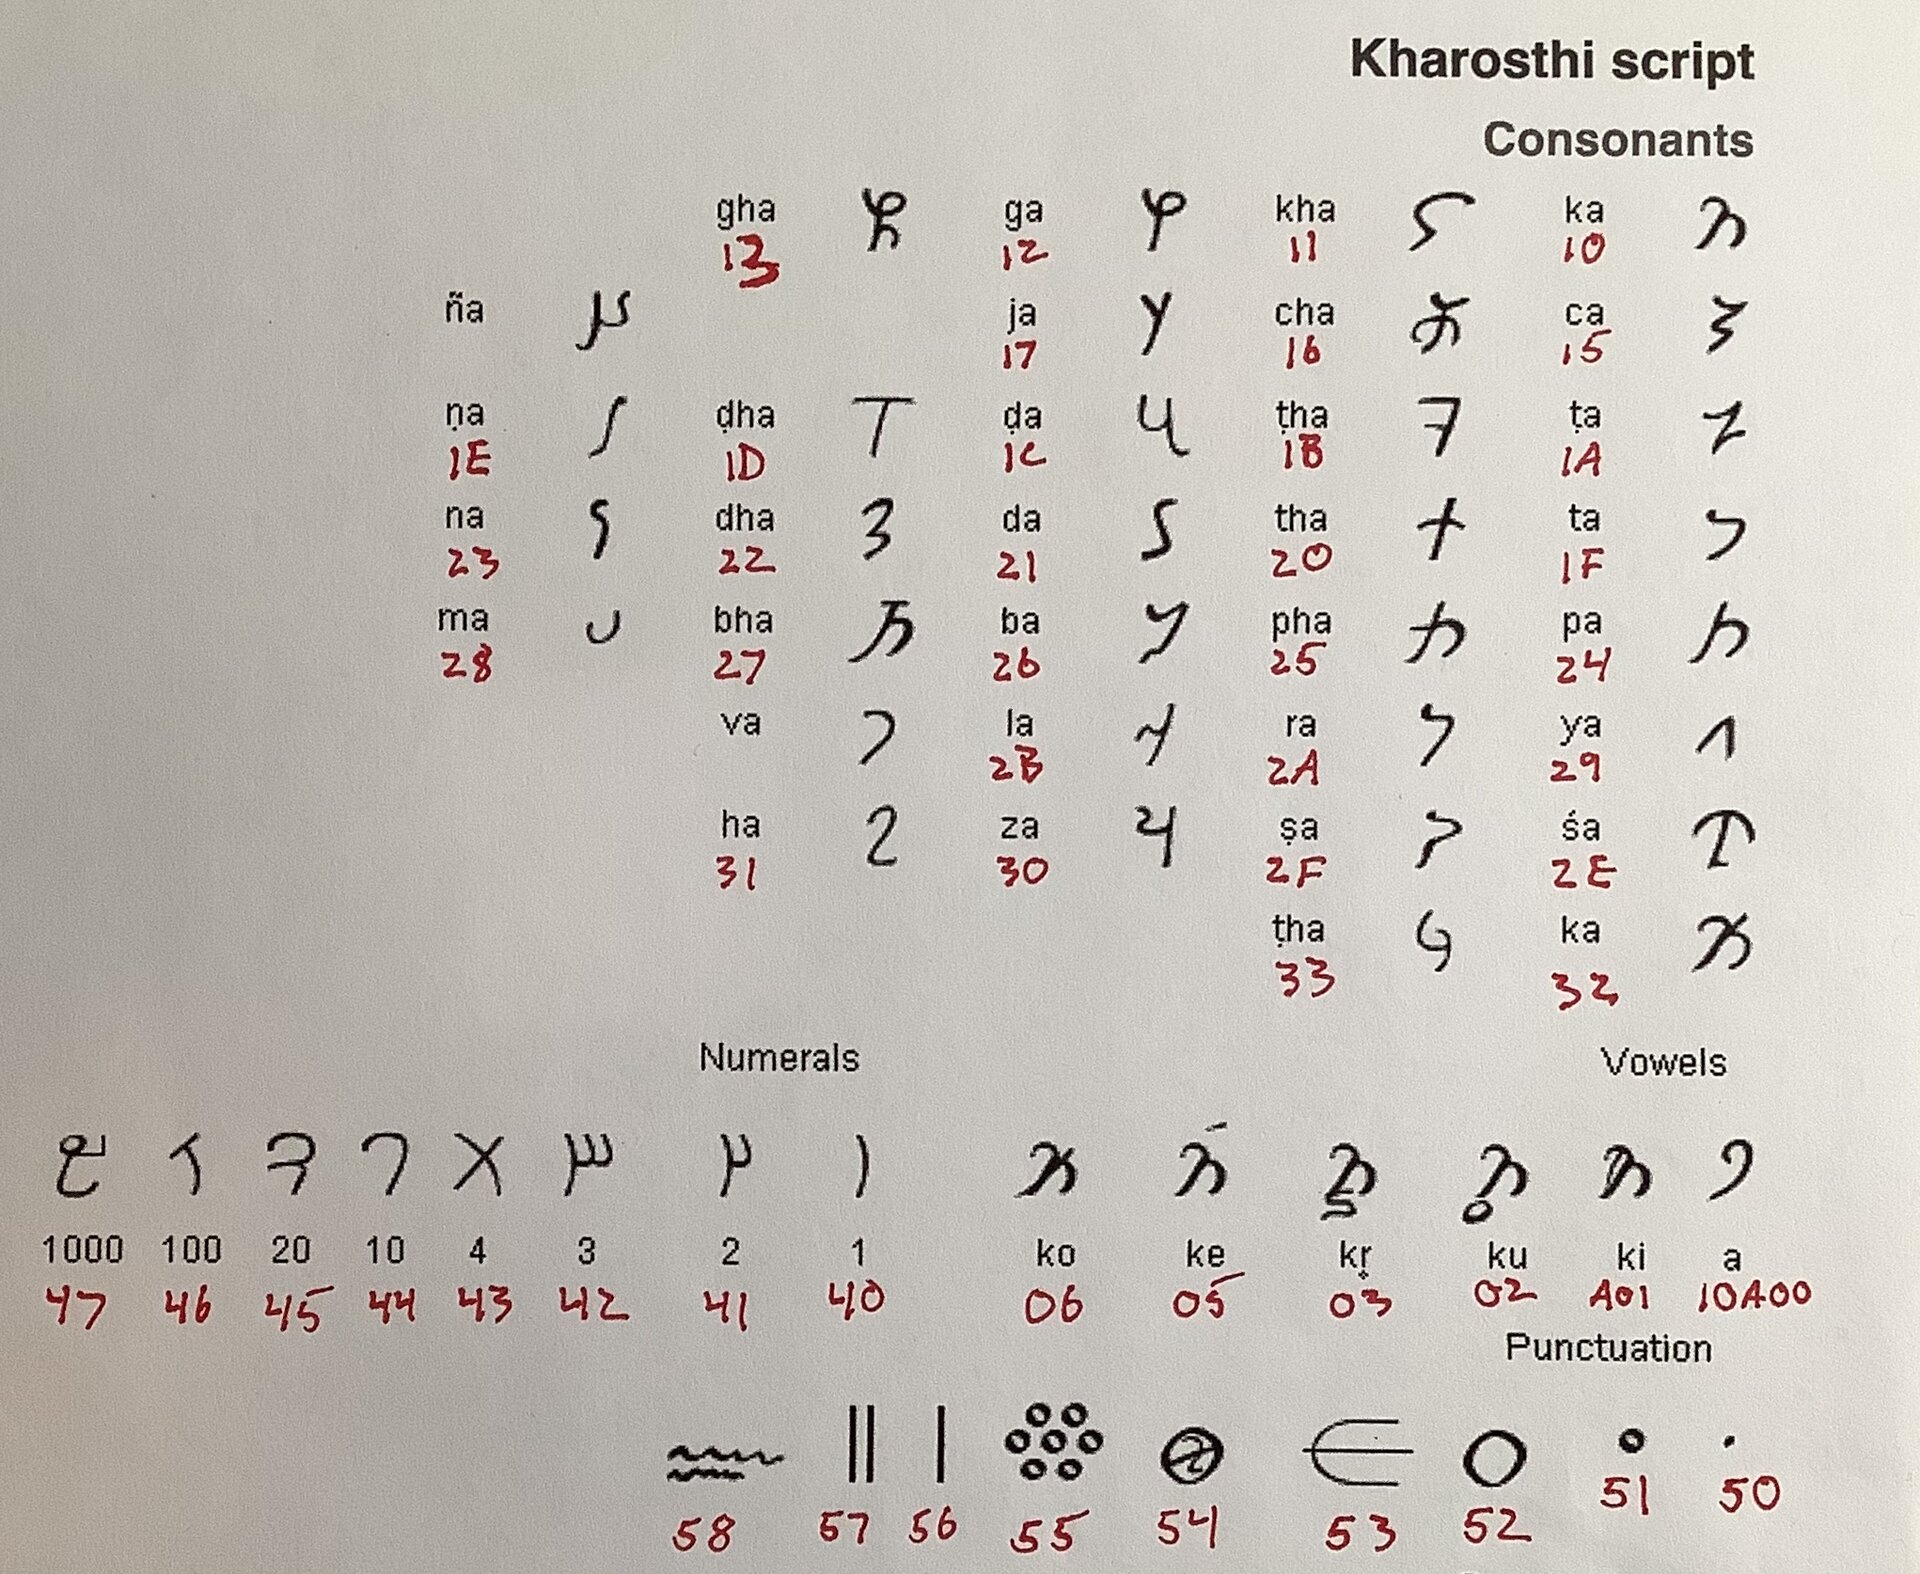 Kharosthi script
Consonants
gha 𐨓 ga 𐨒 kha 𐨑 ka 𐨐
13 12 11 10
ña 𐨙 ja 𐨗 cha 𐨖 ca 𐨕
17 16 15
ṇa 𐨞 ḍha 𐨝 ḍa 𐨜 ṭha 𐨛 ṭa 𐨚
1E 1D 1C 1B 1A
na 𐨣 dha 𐨢 da 𐨡 tha 𐨠 ta 𐨟
23 22 21 20 1F
ma 𐨨 bha 𐨧 ba 𐨦 pha 𐨥 pa 𐨤
28 27 26 25 24
va 𐨬 la 𐨫 ra 𐨪 ya 𐨩
2B 2A 29
ha 𐨱 za 𐨰 ṣa 𐨮 śa 𐨭
31 30 2F 2E
ṭha 𐨳 ka 𐨲
33 32
Numerals Vowels
𐩇 𐩆 𐩅 𐩄 𐩃 𐩂 𐩁 𐩀 𐨐𐨆 𐨐𐨅 𐨐𐨃 𐨐𐨂 𐨐𐨁 𐨀
1000 100 20 10 4 3 2 1 ko ke kṛ ku ki a
47 46 45 44 43 42 41 40 06 05 03 02 A01 10A00
Punctuation
𐩘 𐩗 𐩖 𐩕 𐩔 𐩓 𐩒 𐩑 𐩐
58 57 56 55 54 53 52 51 50